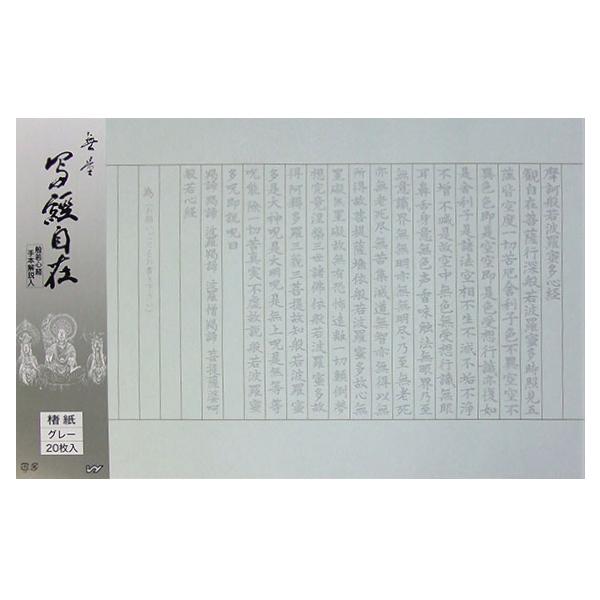 無量
写經自在
般若心経
手本解説入
楮紙
グレー
20枚入
摩訶般若波羅蜜多心経
観自在菩薩行深般若波羅蜜多時照見五
蘊皆空度一切苦厄舎利子色不異空空不
異色色即是空空即是色受想行識亦復如
是舎利子是諸法空相不生不滅不垢不浄
不増不減是故空中無色無受想行識無眼
耳鼻舌身意無色声香味触法無眼界乃至
無意識界無無明亦無無明尽乃至無老死
亦無老死尽無苦集滅道無智亦無得以無
所得故菩提薩埵依般若波羅蜜多故心無
罣礙無罣礙故無有恐怖遠離一切顛倒夢
想究竟涅槃三世諸佛依般若波羅蜜多故
得阿耨多羅三藐三菩提故知般若波羅蜜
多是大神呪是大明呪是無上呪是無等等
呪能除一切苦真実不虚故説般若波羅蜜
多呪即説呪曰
羯諦羯諦波羅羯諦波羅僧羯諦菩提薩婆呵
般若心経
為